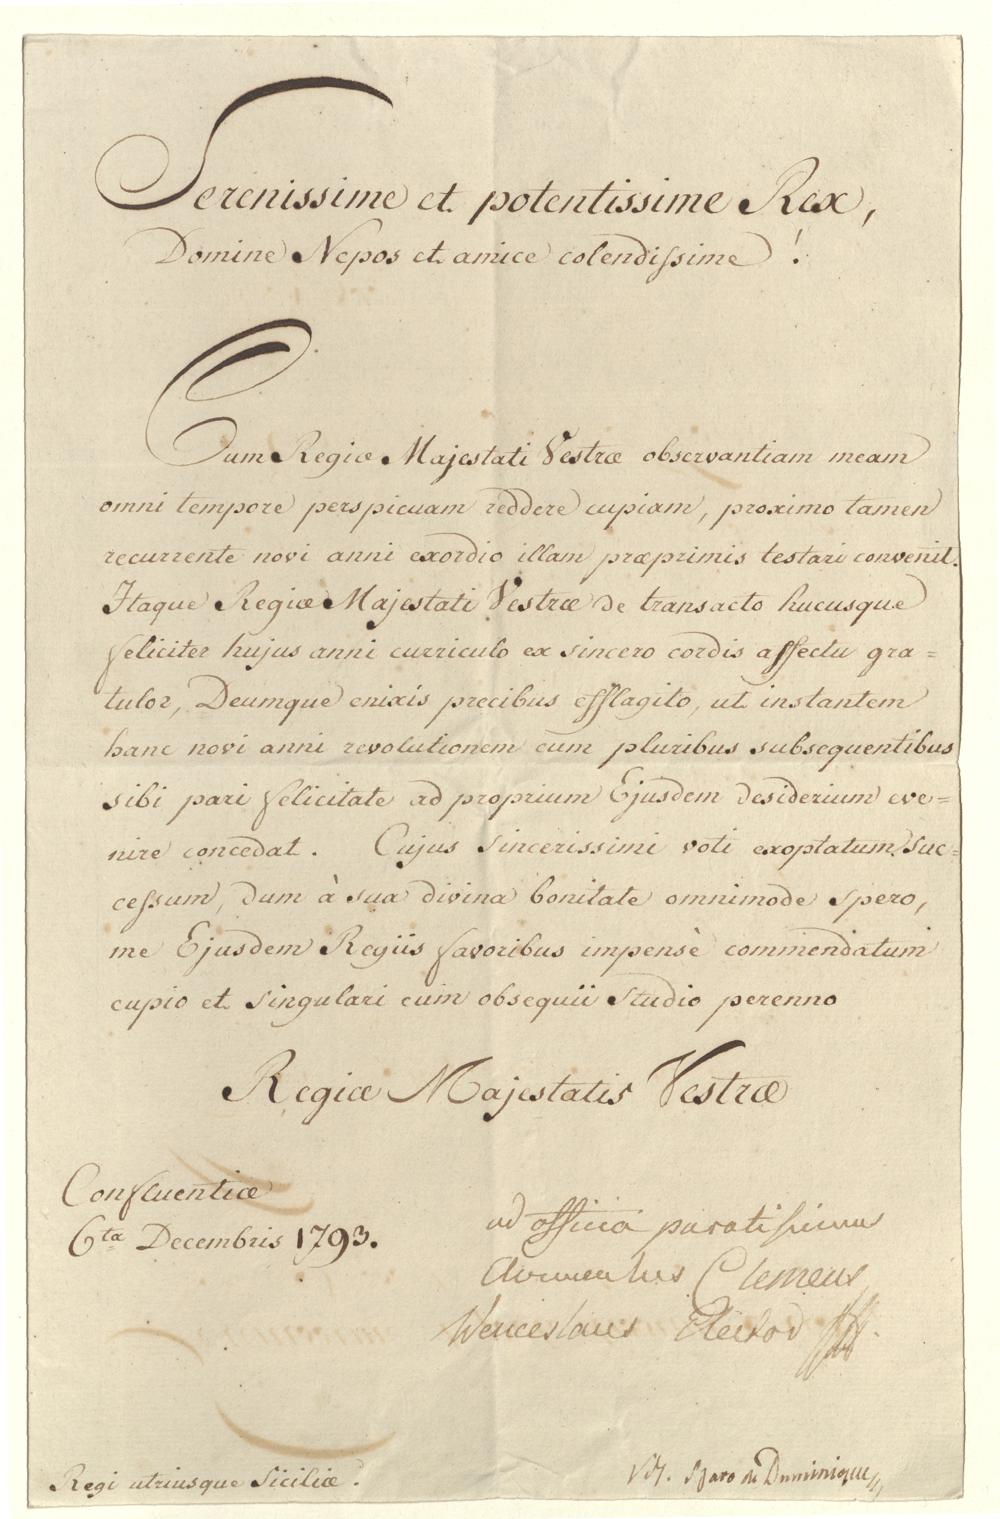 Serenissime et potentissime Rex,
Domine Nepos et amice colendissime!
Cum Regiæ Majestati Vestræ observantiam meam
omni tempore perspicuam reddere cupiam, proximo tamen
recurrente novi anni exordio illam præprimis testari convenit.
Itaque Regiæ Majestati Vestræ de transacto hucusque
feliciter hujus anni curriculo ex sincero cordis affectu gra=
tulor, Deumque enixis precibus efflagito, ut instantem
hanc novi anni revolutionem cum pluribus subsequentibus
sibi pari felicitate ad proprium Ejusdem desiderium eve=
nire concedat. Cujus sincerissimi voti exoptatum suc=
cessum, dum à sua divina bonitate omnimode spero,
me Ejusdem Regiis favoribus impensè commendatum
cupio et singulari cum obsequii studio perenno
Regiæ Majestatis Vestræ
Confluentiæ
6ta Decembris 1793.
ad officia paratissimus
Clemens
Wenceslaus Elector
Regi utriusque Siciliæ.
Duminique